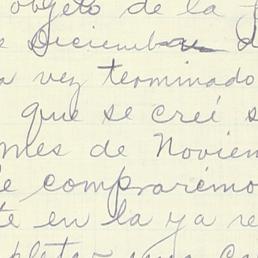 objeto de la f
e Diciembre d
a vez terminado
que se creé s
mes de Noviem
e compraremo
te en la ya re
pletar una ca